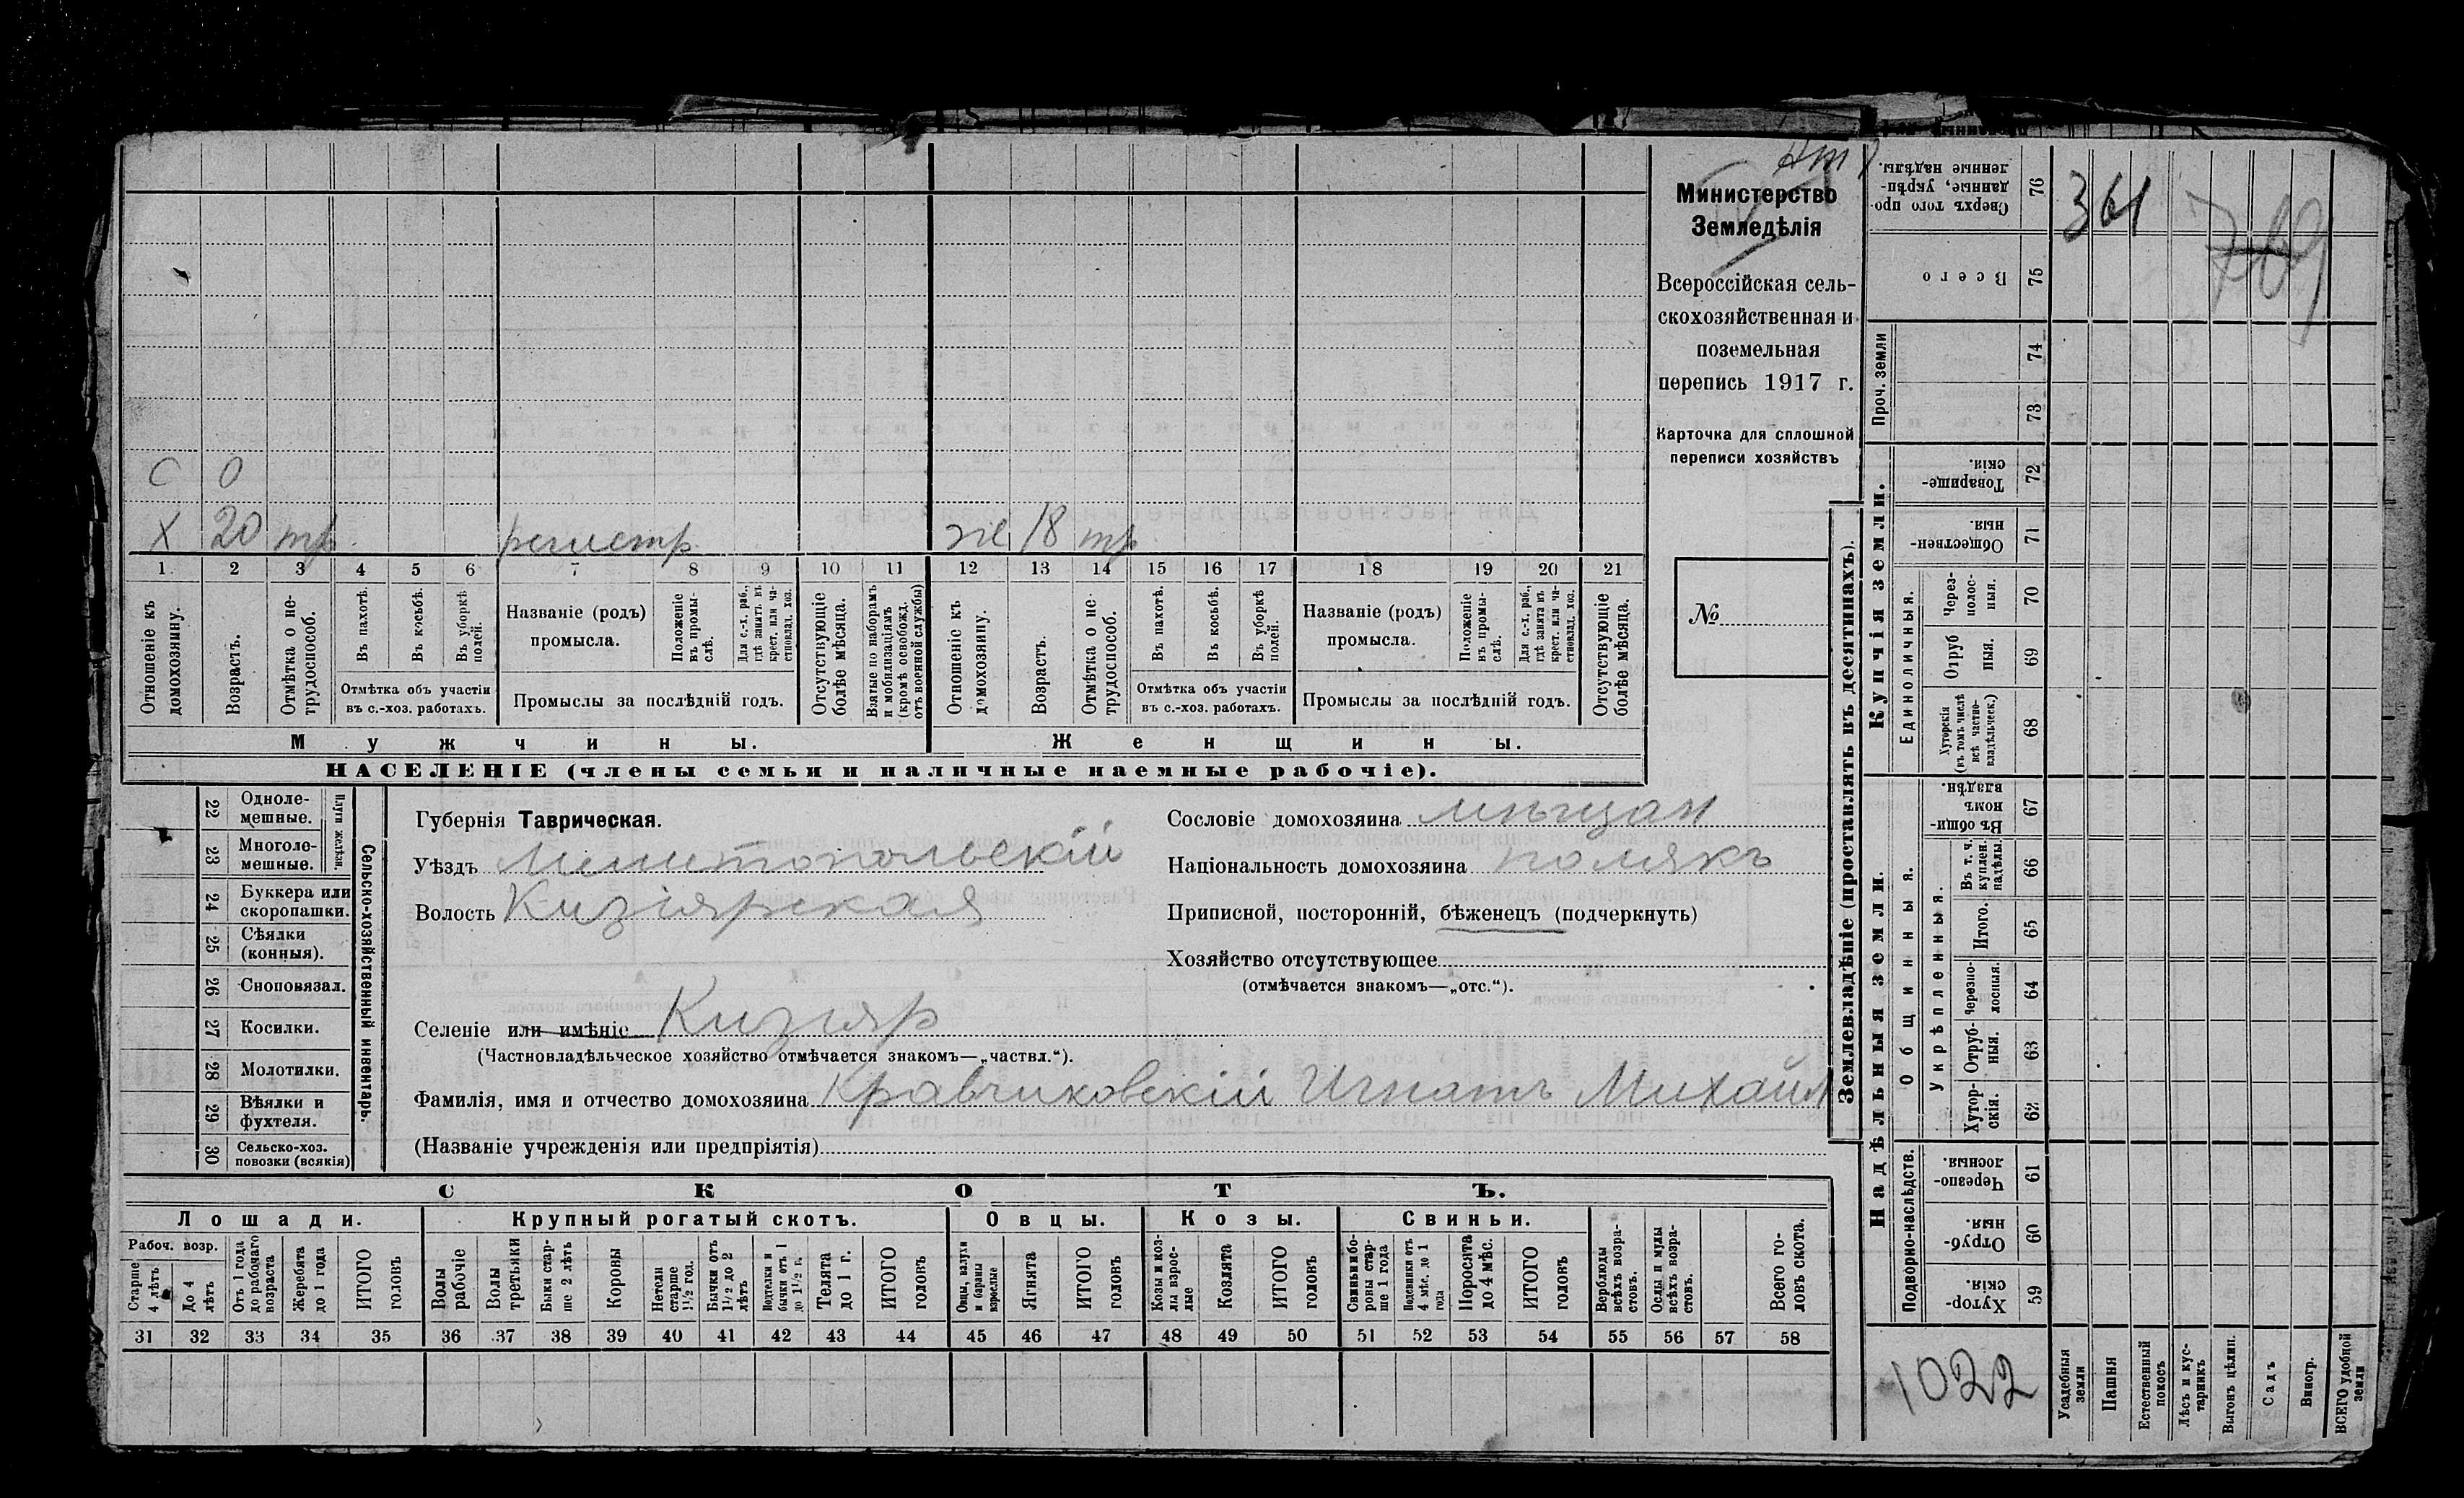 Министерство
Земледѣлія
Всероссійская сель-
скохозяйственная и
поземельная
перепись 1917 г.
Карточка для сплошной
переписи хозяйствъ
№
С 0
Х 20 тр регистр же 18 тр
1 2 3 4 5 6 7 8 9 10 11 12 13 14 15 16 17 18 19 20 21
Отношеніе къ домохозяину.
Возрастъ.
Отмѣтка о не-трудоспособ.
Въ пахотѣ.
Въ косьбѣ.
Въ уборкѣ полей.
Отмѣтка объ участіи
въ с.-хоз. работахъ.
Названіе (родъ)
промысла.
Положеніе въ промы-слѣ.
Для с.-х. раб., гдѣ занятъ въ крест. или ча-стновлад. хоз.
Промыслы за послѣдній годъ.
Отсутствующіе болѣе мѣсяца.
Взятые по наборамъ и мобилизаціямъ (кромѣ освобожд. отъ военной службы)
Отношеніе къ домохозяину.
Возрастъ.
Отмѣтка о не-трудоспособ.
Въ пахотѣ.
Въ косьбѣ.
Въ уборкѣ полей.
Отмѣтка объ участіи
въ с.-хоз. работахъ.
Названіе (родъ)
промысла.
Положеніе въ промы-слѣ.
Для с.-х. раб., гдѣ занята въ крест. или ча-стновлад. хоз.
Промыслы за послѣдній годъ.
Отсутствующіе болѣе мѣсяца.
Мужчины.
Женщины.
НАСЕЛЕНІЕ (члены семьи и наличные наемные рабочіе).
22 Одноле-мешные.
23 Многоле-мешные.
Плуги желѣзн.
24 Буккера или скоропашки.
25 Сѣялки (конныя).
26 Сноповязал.
27 Косилки.
28 Молотилки.
29 Вѣялки и фухтеля.
30 Сельско-хоз. повозки (всякія)
Сельско-хозяйственный инвентарь.
Губернія Таврическая.
Уѣздъ Мелитопольскій
Волость Кизіярская
Селеніе или имѣніе Кизіяр
(Частновладѣльческое хозяйство отмѣчается знакомъ—„частвл.“).
Фамилія, имя и отчество домохозяина Кравчиковскій Игнатъ Михайл
(Названіе учрежденія или предпріятія)
Сословіе домохозяина мѣщан
Національность домохозяина полякъ
Приписной, посторонній, бѣженецъ (подчеркнуть)
Хозяйство отсутствующее
(отмѣчается знакомъ—„отс.“).
СКОТЪ.
Лошади. Крупный рогатый скотъ. Овцы. Козы. Свиньи.
Рабоч. возр.
Старше 4 лѣтъ
До 4 лѣтъ
Отъ 1 года до рабочаго возраста
Жеребята до 1 года
ИТОГО головъ
Волы рабочіе
Волы третьяки
Быки стар-ше 2 лѣтъ
Коровы
Нетели старше 1½ год.
Бычки отъ 1½ до 2 лѣтъ
Подтелки и бычки отъ 1 до 1½ г.
Телята до 1 г.
ИТОГО головъ
Овцы, валухи и бараны взрослые
Ягнята
ИТОГО головъ
Козы и коз-лы взрос-лые
Козлята
ИТОГО головъ
Свиньи и бо-ровы стар-ше 1 года
Подсвинки отъ 4 мѣс. до 1 года
Поросята до 4 мѣс.
ИТОГО головъ
Верблюды всѣхъ возра-стовъ.
Ослы и мулы всѣхъ возра-стовъ.
Всего го-ловъ скота.
31 32 33 34 35 36 37 38 39 40 41 42 43 44 45 46 47 48 49 50 51 52 53 54 55 56 57 58
Землевладѣніе (проставлять въ десятинахъ).
Сверхъ того про-данные, укрѣп-ленные надѣлы. 76
361
769
Всего 75
Проч. земли 74 73
Купчія земли.
Товарище-скія. 72
Обществен-ныя. 71
Единоличныя.
Через-полос-ныя. 70
Отруб ныя. 69
Хуторскія (въ томъ числѣ всѣ частно-владѣльческ.) 68
Надѣльныя земли.
Общинныя.
Въ общи-номъ владѣн. 67
Укрѣпленныя.
Въ т. ч. куплен. надѣлы. 66
Итого. 65
Черезпо-лосныя. 64
Отруб-ныя. 63
Хутор-скія. 62
Подворно-наслѣдств.
Черезпо-лосныя. 61
Отруб-ныя. 60
Хутор-скія. 59
1022
Усадебныя земли
Пашня
Естественный покосъ
Лѣсъ и кус-тарникъ
Выгонъ цѣлин.
Садъ
Виногр.
ВСЕГО удобной земли